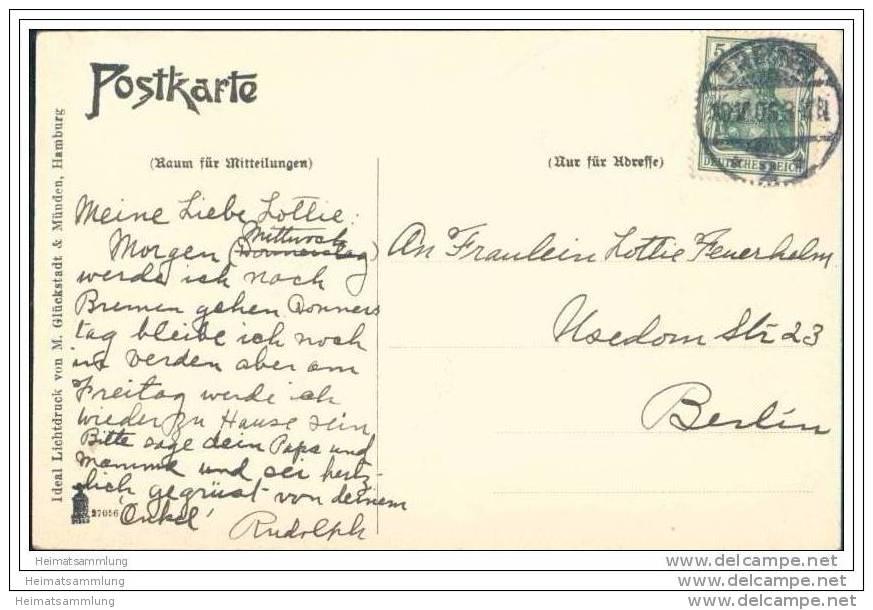 Postkarte
(Raum für Mitteilungen)
(Nur für Adresse)
Ideal Lichtdruck von M. Glückstadt & Münden, Hamburg
27056
5
DEUTSCHES REICH
BREMEN
Meine Liebe Lottie:
Mittwoch
Morgen (Donnerstag)
werde ich noch
Bremen gehen Donners
tag bleibe ich noch
in Verden aber am
Freitag werde ich
wieder zu Hause sein
Bitte sage dein Papa und
Mamma und sei hertz-
lich gegrüst von deinem
'Onkel'
Rudolph
An Fraulein Lottie Feuerhelm
Usedom Str 23
Berlin
Heimatsammlung
Heimatsammlung
Heimatsammlung
www.delcampe.net
www.delcampe.net
www.delcampe.net